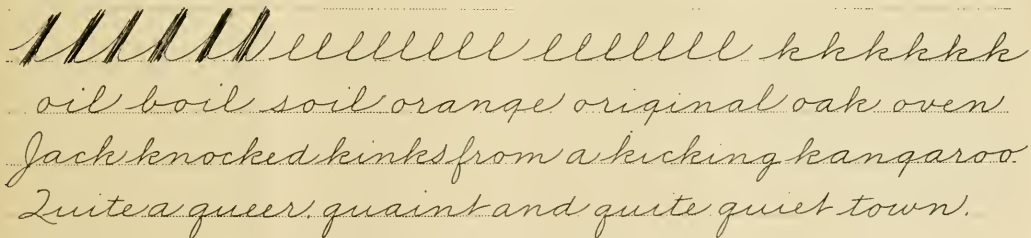 llllll llllllll lllllll kkkkkk
oil boil soil orange original oak oven
Jack knocked kinks from a kicking kangaroo.
Quite a queer, quaint and quite quiet town.